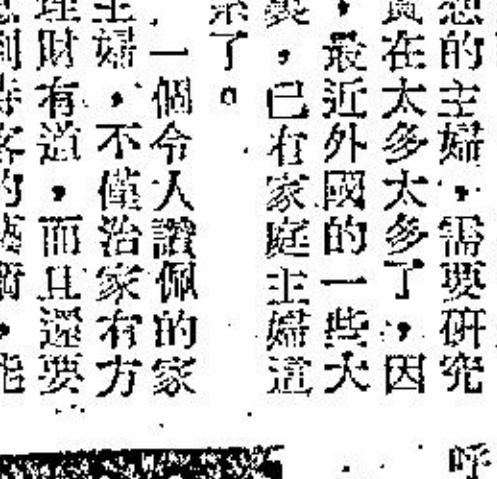 的主婦，需要研究
在太多太多了，因
，最近外國的一些大
，已有家庭主婦這
了。
一個令人讚佩的家
主婦，不僅治家有方
理財有道，而且還要
到待客的藝術，能
呼